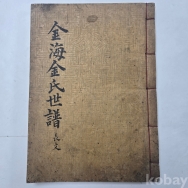 金海金氏世譜
kobay